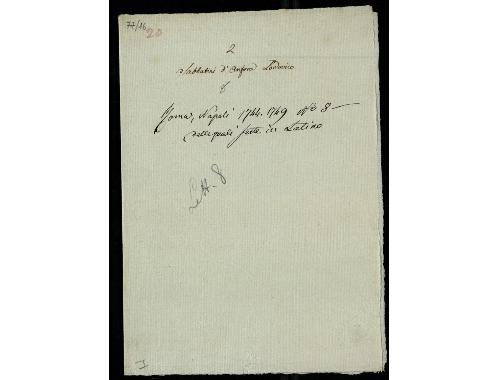 77/16
20
2
Sabbatini d'Anfora Lodovico
8
Roma, Napoli 1744.1749 N° 8 —
delle quali sette in Latino
Lett. 8
I